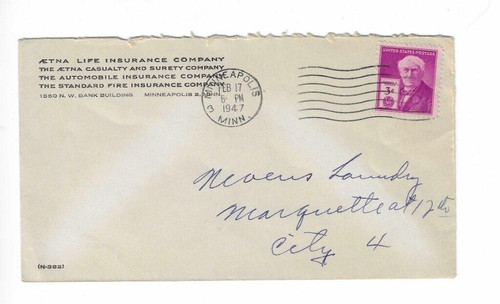 ÆTNA LIFE INSURANCE COMPANY
THE ÆTNA CASUALTY AND SURETY COMPANY
THE AUTOMOBILE INSURANCE COMPANY
THE STANDARD FIRE INSURANCE COMPANY
1560 N. W. BANK BUILDING MINNEAPOLIS 2, MINN.
MINNEAPOLIS
FEB 17
6 PM
1947
3 MINN.
UNITED STATES POSTAGE
3¢
Nevens Laundry
Marquette at 12th
City 4
(N-382)